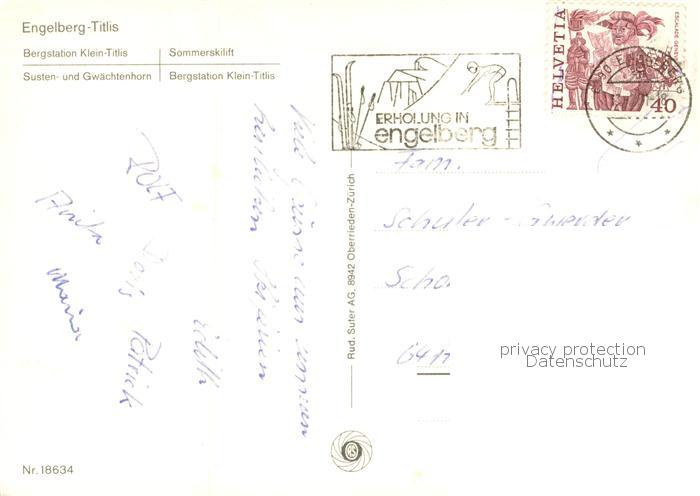 Engelberg-Titlis
Bergstation Klein-Titlis
Sommerskilift
Susten- und Gwächtenhorn
Bergstation Klein-Titlis
HELVETIA
ESCALADE GENEVE
40
ERHOLUNG IN
engelberg
Fam.
Schuler - Gwerder
Scho
641
privacy protection
Datenschutz
Rud. Suter AG, 8942 Oberrieden-Zürich
Viele Grüsse aus unseren
Edith
Rolf
Doris Patrick
Anita
Maria
Nr. 18634